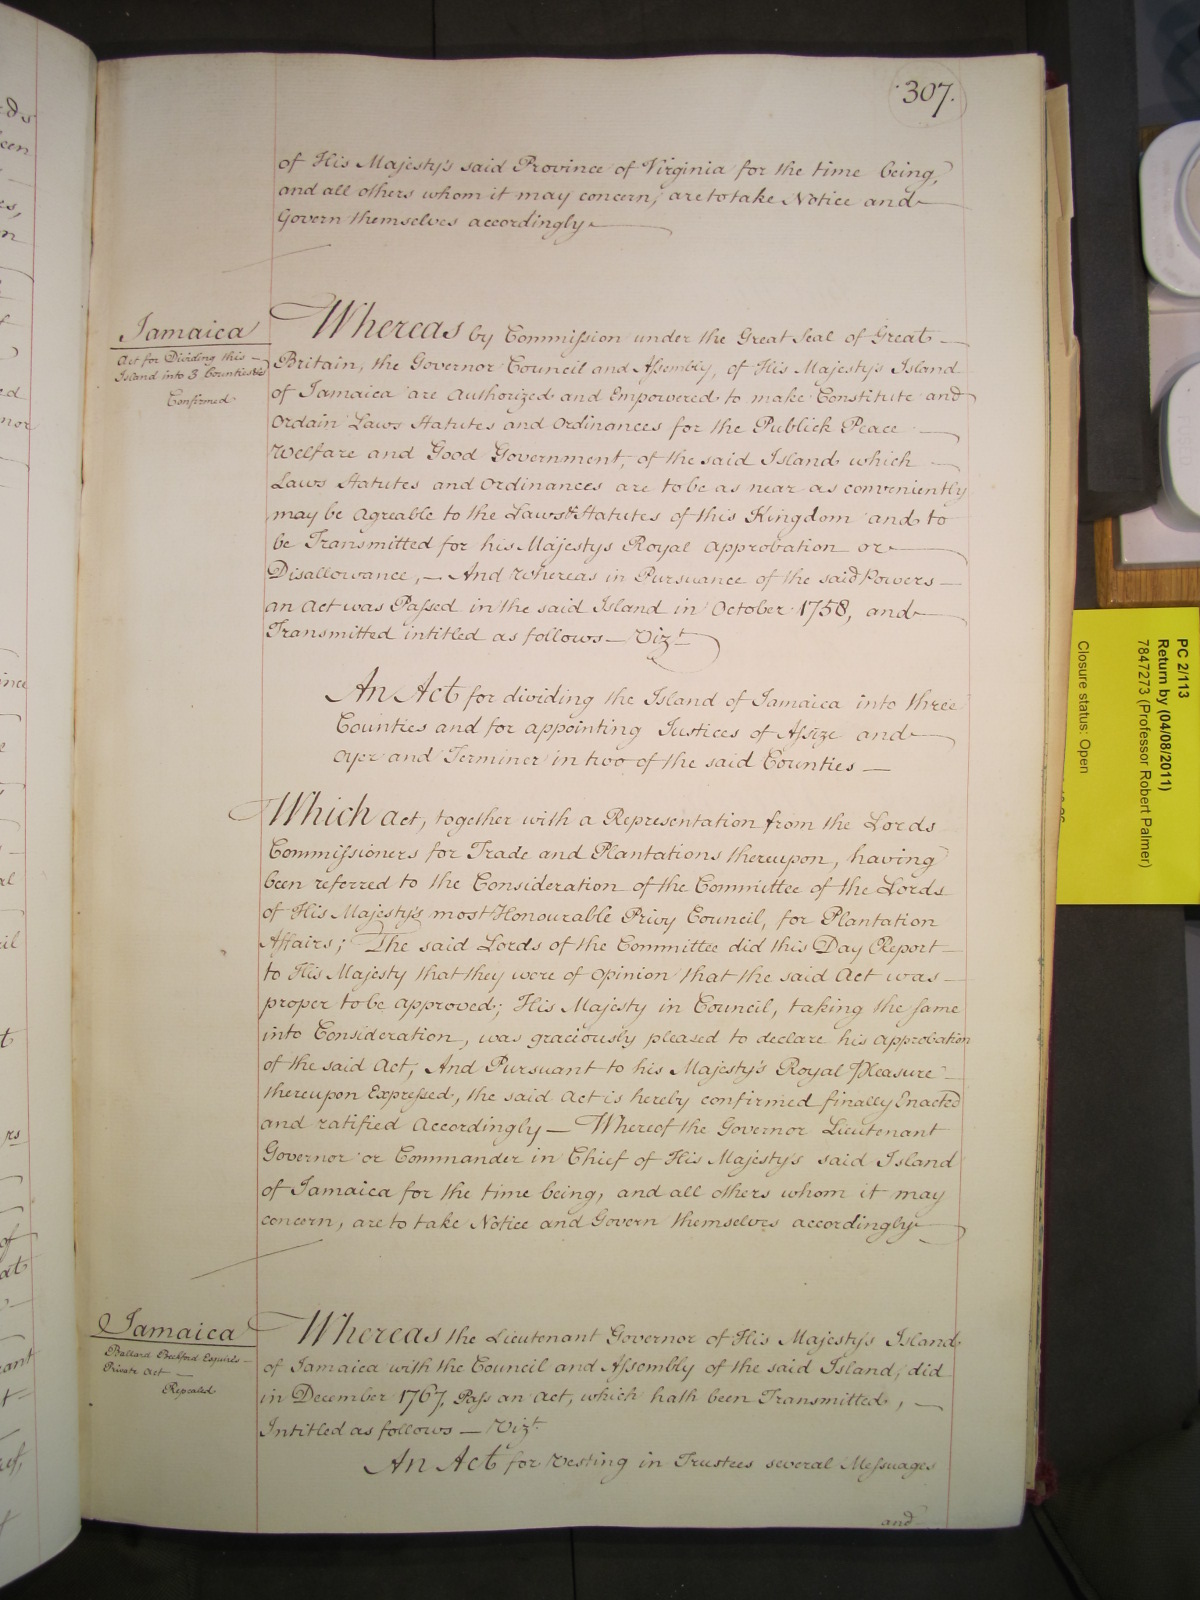 307.
of His Majesty's said Province of Virginia for the time being,
and all others whom it may concern, are to take Notice and
Govern themselves accordingly
Jamaica
Act for Dividing this
Island into 3 Counties
Confirmed
Whereas by Commission under the Great Seal of Great
Britain, the Governor Council and Assembly, of His Majesty's Island
of Jamaica are Authorized and Empowered to make Constitute and
Ordain Laws Statutes and Ordinances for the Publick Peace
Welfare and Good Government, of the said Island which
Laws Statutes and Ordinances are to be as near as conveniently
may be Agreable to the Laws & Statutes of this Kingdom and to
be Transmitted for his Majestys Royal Approbation or
Disallowance, — And Whereas in Pursuance of the said Powers
an Act was Passed in the said Island in October 1758, and
Transmitted intitled as follows — Vizt
An Act for dividing the Island of Jamaica into three
Counties and for appointing Justices of Assize and
Oyer and Terminer in two of the said Counties —
Which Act, together with a Representation from the Lords
Commissioners for Trade and Plantations thereupon, having
been referred to the Consideration of the Committee of the Lords
of His Majesty's most Honourable Privy Council, for Plantation
Affairs; The said Lords of the Committee did this Day Report
to His Majesty that they were of Opinion that the said Act was
proper to be approved; His Majesty in Council, taking the same
into Consideration, was graciously pleased to declare his Approbation
of the said Act; And Pursuant to his Majesty's Royal Pleasure
thereupon Expressed, the said Act is hereby confirmed finally Enacted
and ratified Accordingly — Whereof the Governor Lieutenant
Governor or Commander in Chief of His Majesty's said Island
of Jamaica for the time being, and all others whom it may
concern, are to take Notice and Govern themselves accordingly
Jamaica
Ballard Beckford Esquires
Private Act —
Repealed
Whereas the Lieutenant Governor of His Majesty's Island
of Jamaica with the Council and Assembly of the said Island, did
in December 1767, Pass an Act, which hath been Transmitted,
Intitled as follows — Vizt
An Act for Vesting in Trustees several Messuages
and
PC 2/113
Return by (04/08/2011)
7847273 (Professor Robert Palmer)
Closure status: Open